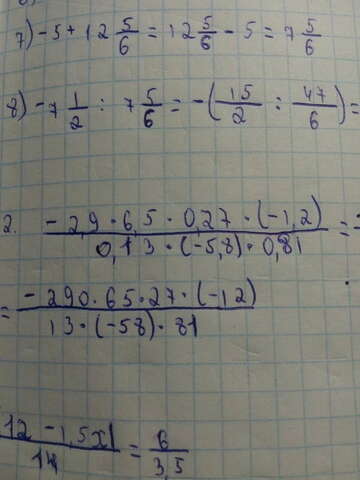 7) -5 + 12 5/6 = 12 5/6 - 5 = 7 5/6
8) -7 1/2 : 7 5/6 = -(15/2 : 47/6) =
2. (-2,9 · 6,5 · 0,27 · (-1,2))/(0,13 · (-5,8) · 0,81) = -
= (-290 · 65 · 27 · (-12))/(13 · (-58) · 81)
|12 - 1,5x|/14 = 6/3,5